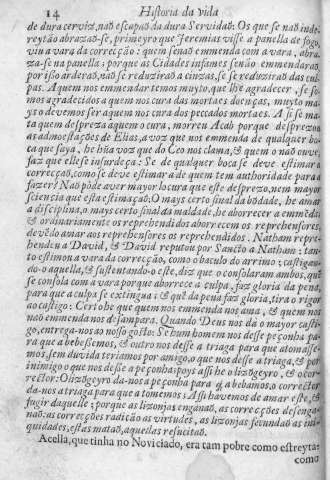 14 Historia da vida
de dura cerviz, naõ escapaõ da dura Servidaõ: Os que se naõ inde-
reytaõ abrazaõ-se, primeyro que Jeremias visse a panella de fogo,
viu a vara da correcçaõ: quem senaõ emmenda com a vara, abra-
za-se na panella: porque as Cidades infames senaõ emmendaraõ,
por isso arderaõ, naõ se reduziraõ a cinzas, se se reduziraõ das cul-
pas. A quem nos emmendar temos muyto, que lhe agradecer, se so-
mos agradecidos a quem nos cura das mortaes doenças, muyto ma-
ys o devemos ser a quem nos cura dos peccados mortaes. A si se ma-
ta quem despreza a quem o cura, morreu Acab porque desprezou
as admoestações de Elias, a voz que nos emmenda de qualquer bo-
ca que saya, he hũa voz que do Ceo nos clama, & quem o naõ ouve,
faz que elle se insurdeça: Se de qualquer boca se deve estimar a
correcçaõ, como se deve estimar a de quem tem authoridade para a
fazer? Naõ pòde aver mayor locura que este desprezo, nem mayor
sciencia que esta estimaçaõ: O mays certo sinal da bõdade, he amar
a disciplina, o mays certo sinal da maldade, he aborrecer a emmẽda:
& ordinariamente os reprehendidos aborrecem os reprehensores,
devẽdo amar aos reprehensores os reprehendidos. Natham repre-
hendeu a David, & David reputou por Sancto a Natham: tan-
to estimou a vara da correcçaõ, como o baculo do arrimo: castigan-
do-o aquella, & sustentando-o este, diz que o consolaram ambos, que
se consola com a vara porque aborrece a culpa, faz gloria da pena,
para que a culpa se extingua: & quẽ da pena faz gloria, tira o rigor
ao castigo: Certo he que quem nos emmenda nos ama, & quem nos
naõ emmenda nos desampara. Quando Deus nos dá o mayor casti-
go, entrega-nos ao nosso gosto: Se hum homem nos desse peçonha pa-
ra que a bebessemos, & outro nos desse a triaga para que a tomasse-
mos, sem duvida teriamos por amigo, o que nos desse a triaga, & por
inimigo o que nos desse a peçonha; poys assi he o lizõgeyro, & o cor-
rector: O lizõgeyro da-nos a peçonha para q̃ a bebamos, o corrector
da-nos a triaga para que a tomemos: Assi havemos de amar este, &
fugir daquelle; porque as lizonjas enganaõ, as correcções desenga-
naõ: as correcções radicaõ as virtudes, as lizonjas fecundaõ as ini-
quidades, estas mataõ, aquellas resucitaõ.
Acella, que tinha no Noviciado, era tam pobre como estreyta:
como